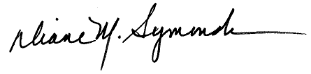 Diane M. Symonds